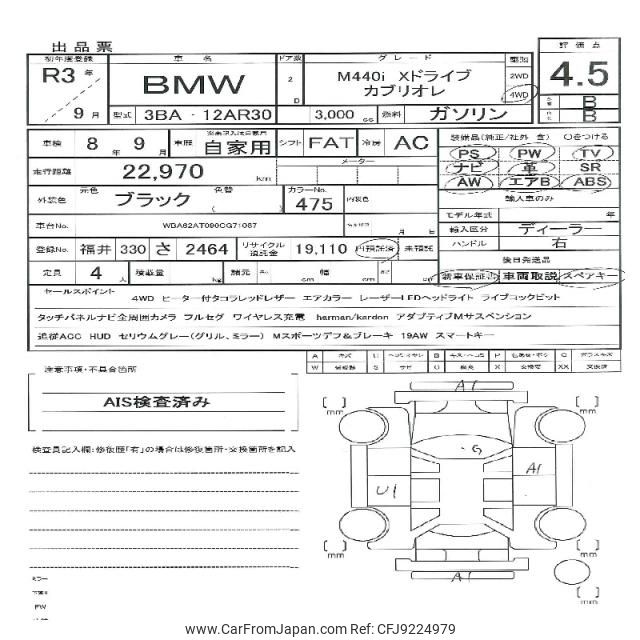 出品票
初年度登録 車名 ドア数 グレード 駆動 評価点
R3年 9月
BMW
2 D
M440i Xドライブ
カブリオレ
2WD
4WD
4.5
B
B
型式 3BA - 12AR30 3,000 cc 燃料 ガソリン
車検 8年 9月 車歴 自家用 シフト FAT 冷房 AC
装備品(純正/社外 含) ○をつける
PS PW TV
ナビ 革 SR
AW エアB ABS
走行距離 22,970 km メーター
外装色 元色 ブラック 色替 カラーNo. 475 内装色
輸入車のみ
モデル年式 年
車台No. WBA62AT090CG71087 月
輸入区分 ディーラー
登録No. 福井 330 さ 2464 リサイクル預託金 19,110 円預託済 未預託
ハンドル 右
後日発送品
定員 4人 積載量 kg 諸元 長 cm 幅 cm 高 cm
新車保証書 車両取説 スペアキー
セールスポイント
4WD ヒーター付タコラレッドレザー エアカラー レーザーLEDヘッドライト ライブコックピット
タッチパネルナビ全周囲カメラ フルセグ ワイヤレス充電 harman/kardon アダプティブMサスペンション
追従ACC HUD セリウムグレー(グリル、ミラー) Mスポーツデフ&ブレーキ 19AW スマートキー
注意事項・不具合箇所
AIS検査済み
検査員記入欄:修復歴「有」の場合は修復箇所・交換箇所を記入
A U B P C
W S O X XX
A1
[ ] mm
[ ] mm
・G
A1
U1
[ ] mm
[ ] mm
A1
[ ] mm
ミラー
PW
www.CarFromJapan.com Ref: CFJ9224979